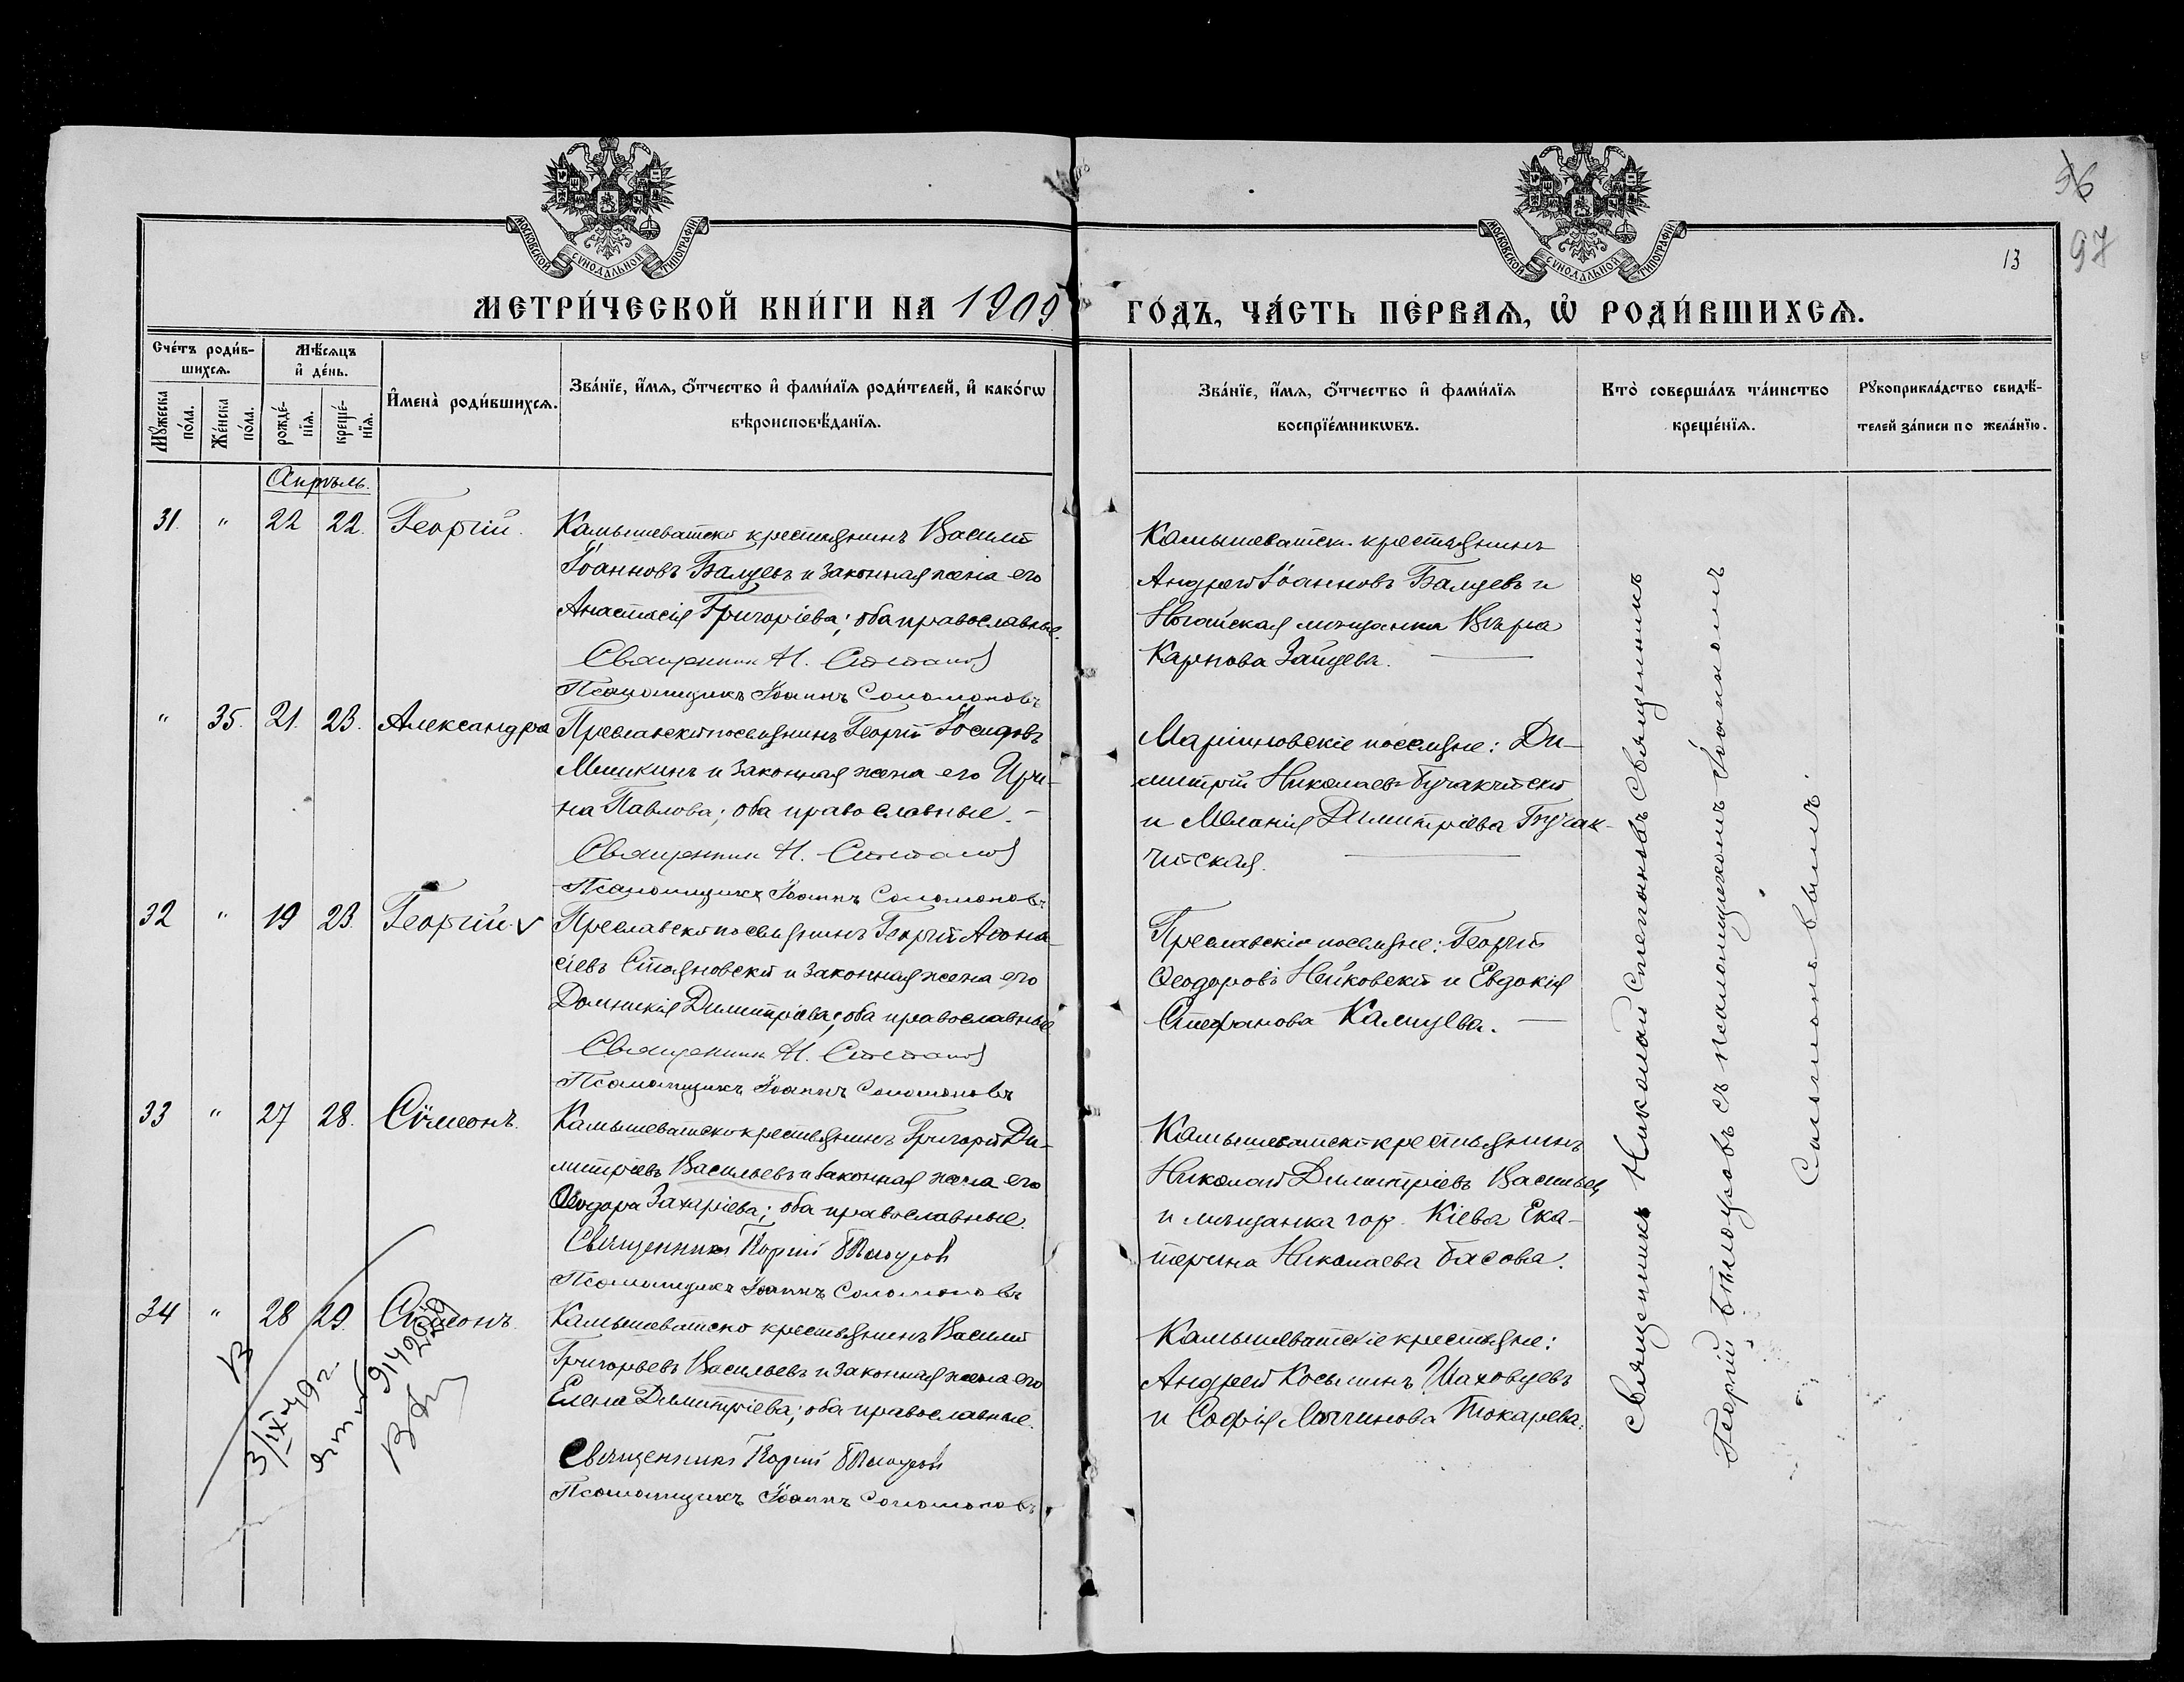 96
97
13
МОСКОВСКОЙ СУНОДАЛЬНОЙ ТИПОГРАФІИ
МОСКОВСКОЙ СУНОДАЛЬНОЙ ТИПОГРАФІИ
МЕТРИ́ЧЕСКОЙ КНИ́ГИ НА 1909 ГО́ДЪ, ЧА́СТЬ ПЕ́РВАѦ, Ѡ҆ РОДИ́ВШИХСѦ.
Сче́тъ роди́в-
шихсѧ.
Мꙋ́жеска по́ла.
Же́нска по́ла.
Мѣ́сѧцъ
и҆ де́нь.
рожде́-
нїѧ.
креще́-
нїѧ.
И҆мена̀ роди́вшихсѧ.
Зва́нїе, и҆́мѧ, ѻ҆́тчество и҆ фами́лїѧ роди́телей, и҆ како́гѡ
вѣроисповѣ́данїѧ.
Зва́нїе, и҆́мѧ, ѻ҆́тчество и҆ фами́лїѧ
воспрїе́мникѡвъ.
Кто̀ соверша́лъ та́инство
креще́нїѧ.
Рꙋкоприкла́дство свидѣ́-
телей за́писи по жела́нїю.
Апрѣль.
31. " 22 22. Георгій.
Камышеватскій крестьянинъ Василій
Іоанновъ Балцевъ и законная жена его
Анастасія Григоріева; оба православные.
Священникъ Н. Степановъ
Псаломщикъ Іоаннъ Соломоновъ
Камышеватск. крестьянинъ
Андрей Іоанновъ Балцевъ и
Ногайская мѣщанка Вѣра
Карпова Зайцева.
" 35. 21. 23. Александра
Преславскій поселянинъ Георгій Іосифовъ
Мишкинъ и законная жена его Ири-
на Павлова; оба православные.
Священникъ Н. Степановъ
Псаломщикъ Іоаннъ Соломоновъ
Маріиновскіе поселяне: Ди-
митрій Николаевъ Бучакчійскій
и Меланія Димитріева Бучак-
чійская.
32 " 19 23. Георгій. v
Преславскій поселянинъ Георгій Аѳона-
сіевъ Стояновскій и законная жена его
Домникія Димитріева; оба православные
Священникъ Н. Степановъ
Псаломщикъ Іоаннъ Соломоновъ
Преславскіе поселяне: Георгій
Ѳеодоровъ Нейковскій и Евдокія
Стефанова Калицева.
33 " 27 28. Сѵмеонъ.
Камышеватскій крестьянинъ Григорій Ди-
митріевъ Васильевъ и законная жена его
Ѳеодора Захаріева; оба православные.
Священникъ Георгій Бѣлоусовъ
Псаломщикъ Іоаннъ Соломоновъ
Камышеватскій крестьянинъ
Николай Димитріевъ Васильевъ
и мѣщанка гор. Кіева Ека-
терина Николаева Басова.
34 " 28 29. Сѵмеонъ.
Камышеватскій крестьянинъ Василій
Григорьевъ Васильевъ и законная жена его
Елена Димитріева; оба православные.
Священникъ Георгій Бѣлоусовъ
Псаломщикъ Іоаннъ Соломоновъ
Камышеватскіе крестьяне:
Андрей Косьминъ Шаховцевъ
и Софія Токарева.
В
3/IX 49 г.
Священникъ Николай Степановъ Священникъ
Георгій Бѣлоусовъ съ псаломщикомъ Іоанномъ
Соломоновымъ.